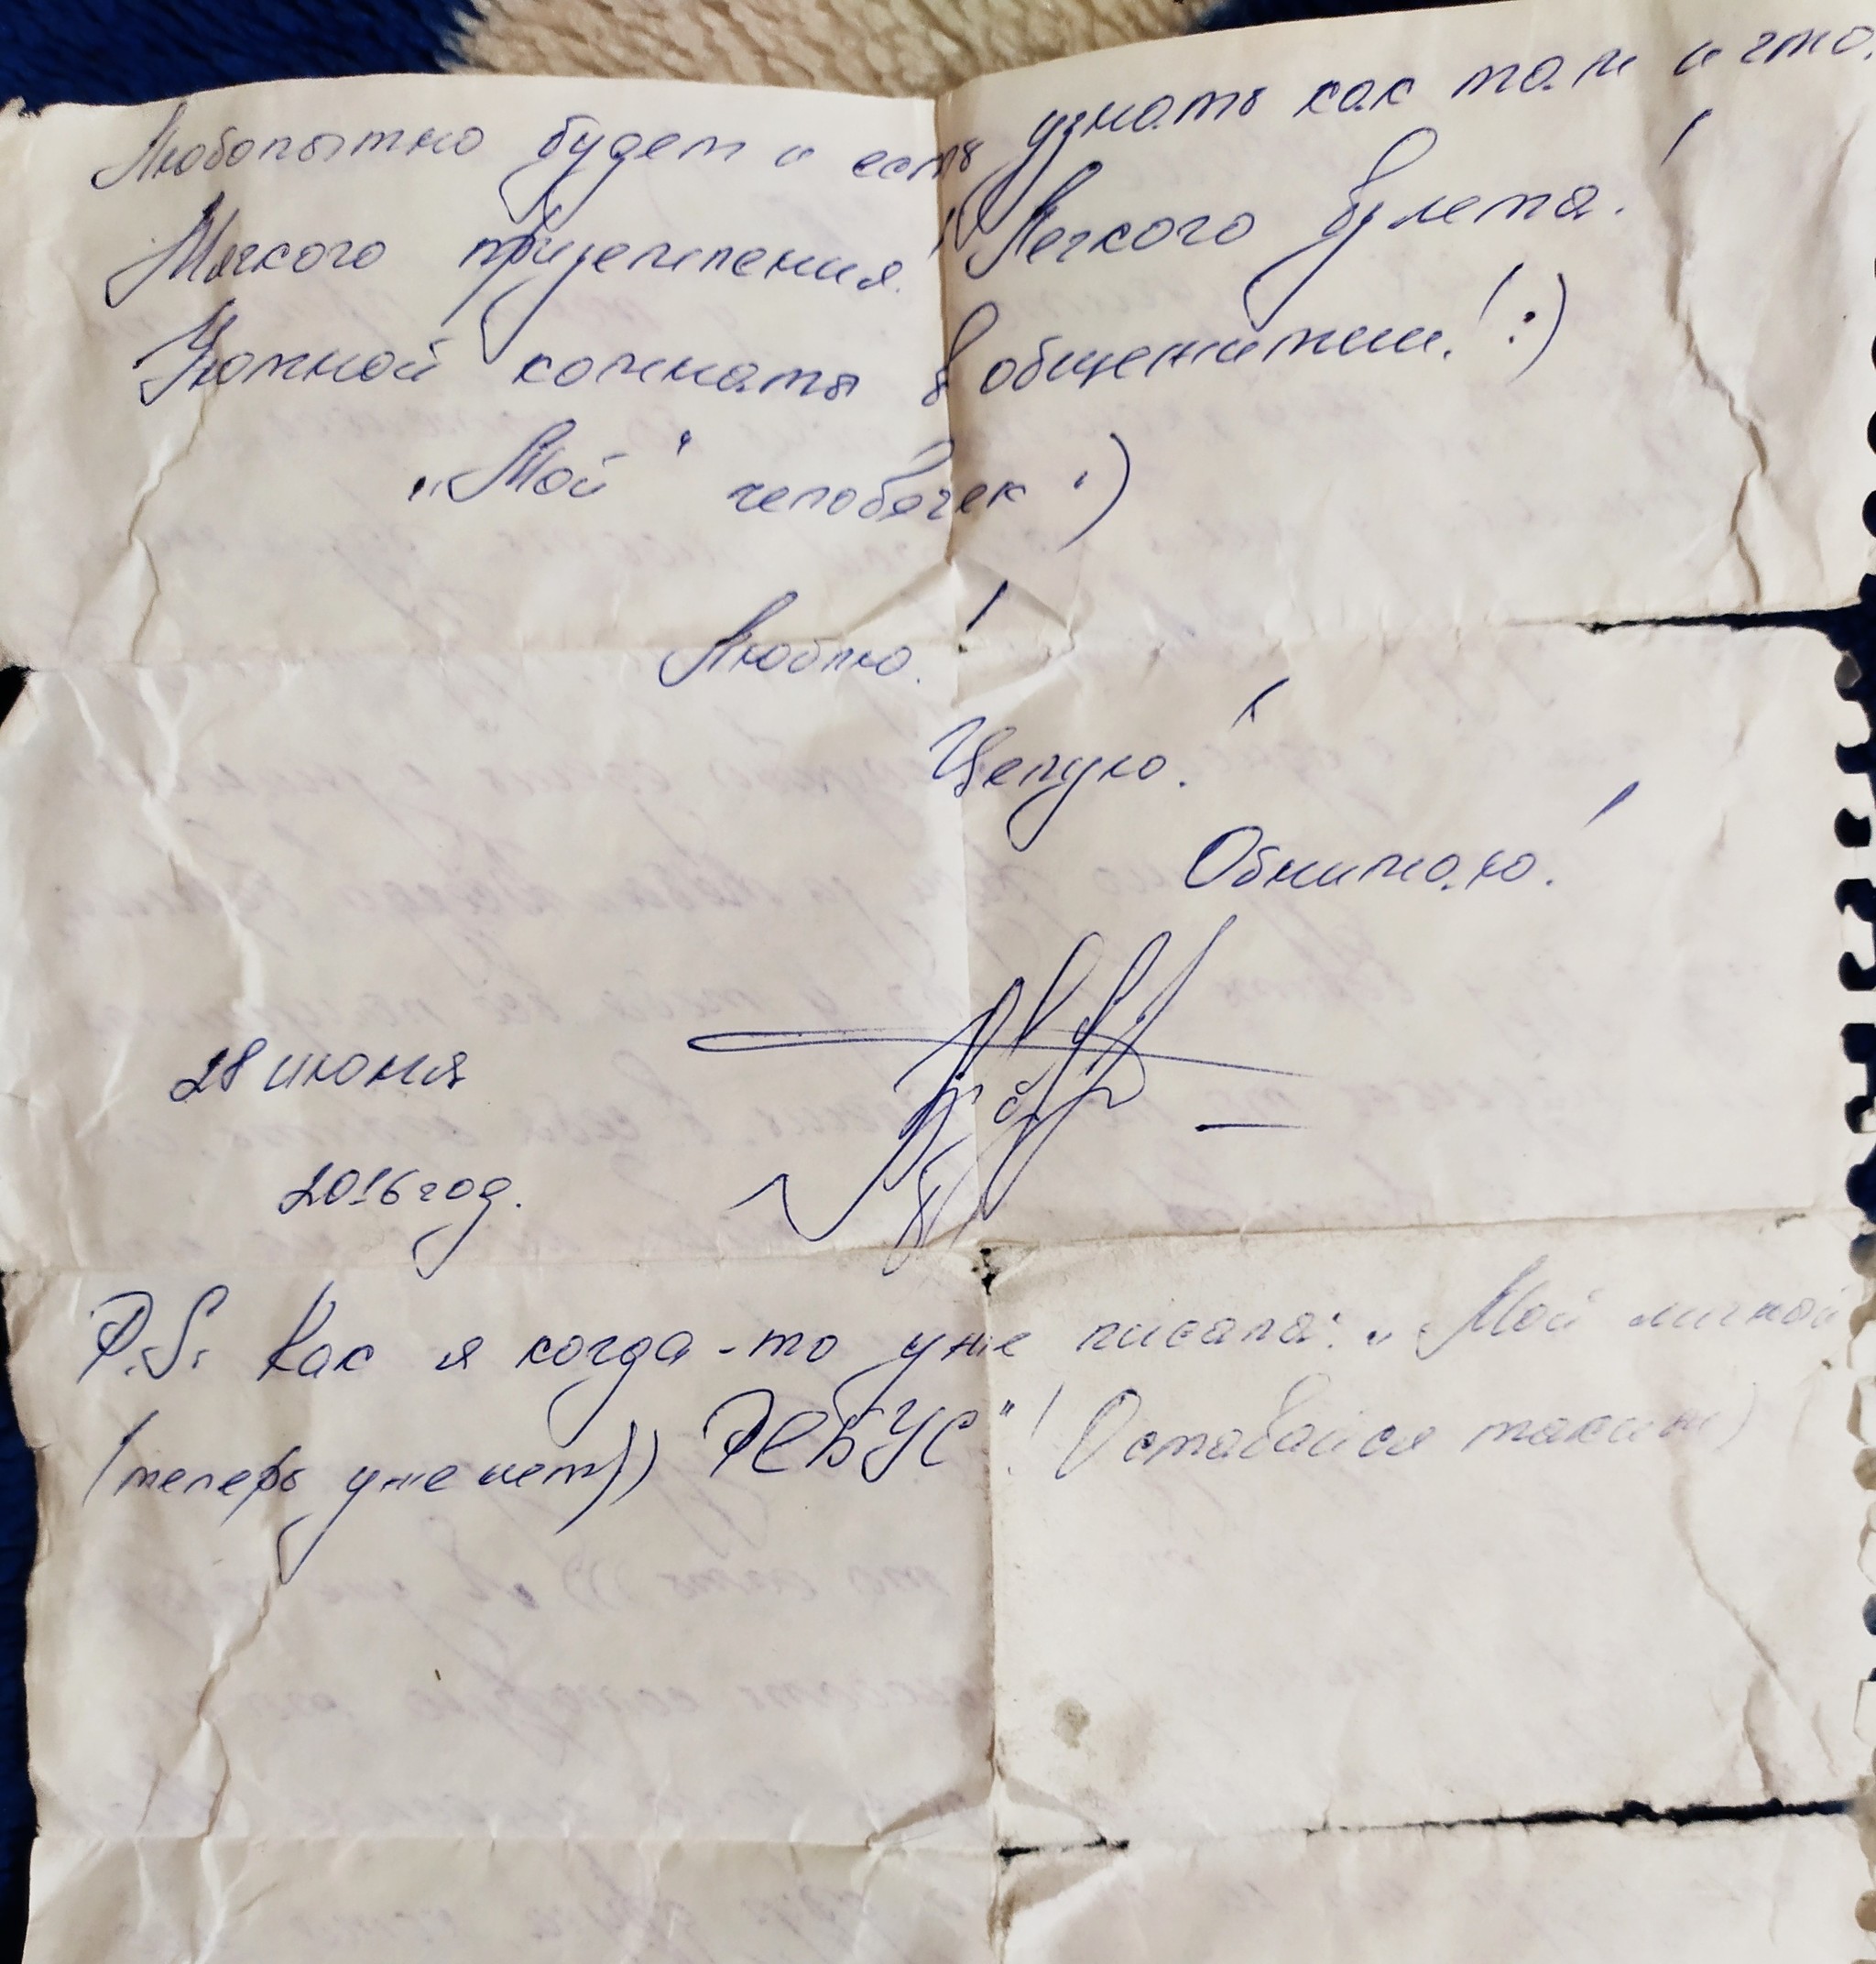 Любопытно будет и есть узнать как там и что.
Мягкого приземления! Легкого взлета!
Уютной комнаты в общежитии! :)
„Мой" человечек :)
Люблю!
Целую!
Обнимаю!
28 июня
2016 год.
P.S. Как я когда-то уже писала: „Мой личной
(теперь уже нет)) РЕБУС"! Оставайся таким)